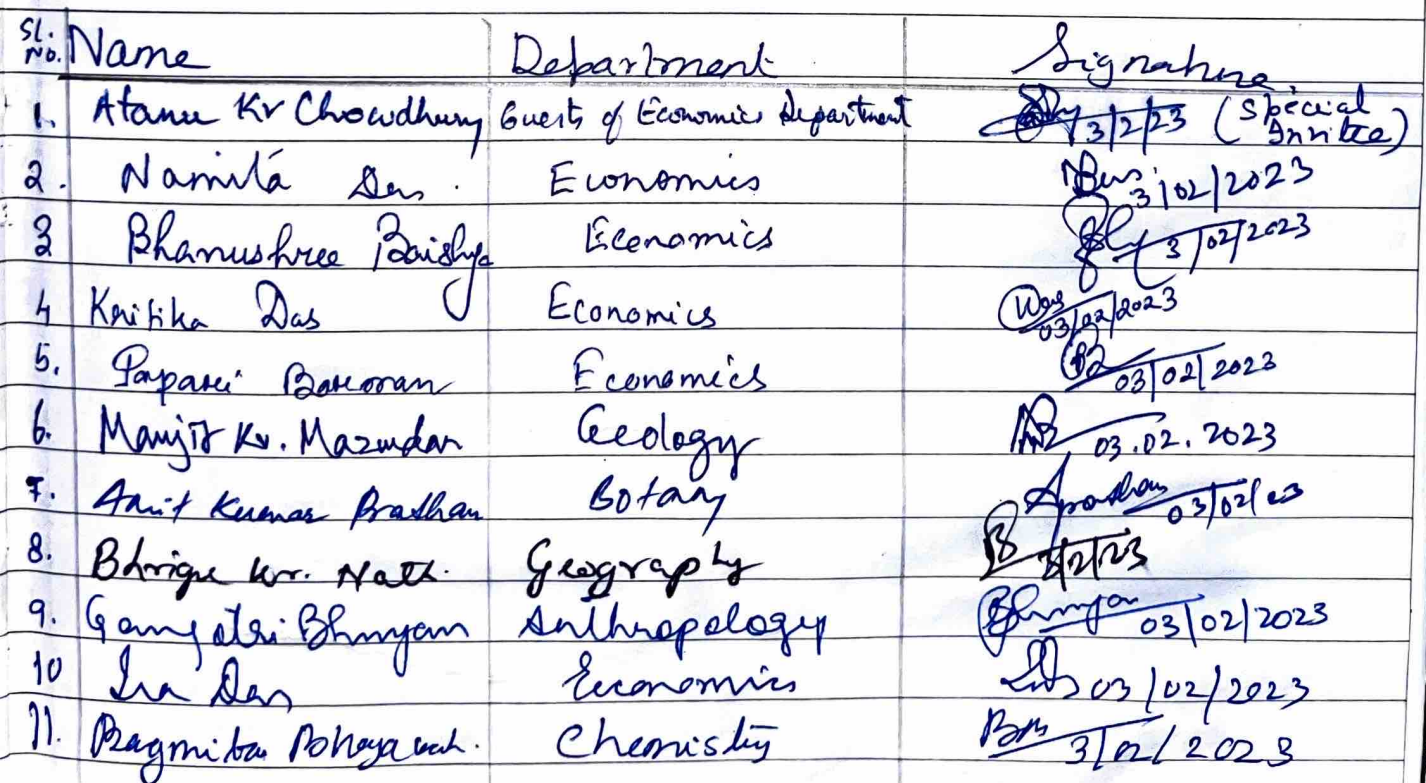 Sl. No. Name Department Signature
1. Atanu Kr Chowdhury Guests of Economics Department 3/2/23 (Special Invitee)
2. Namita Das. Economics NDas 3/02/2023
3 Bhanushree Baishya Economics 3/02/2023
4 Kritika Das Economics KDas 03/02/2023
5. Papari Barman Economics 03/02/2023
6. Manjit Kr. Mazumdar Geology 03.02.2023
7. Amit Kumar Pradhan Botany Apradhan 03/02/23
8. Bhrigu Kr. Nath. Geography 3/2/23
9. Gayatri Bhuyan Anthropology GBhuyan 03/02/2023
10 Ira Das Economics IDas 03/02/2023
11. Bagmita Chemistry 3/02/2023